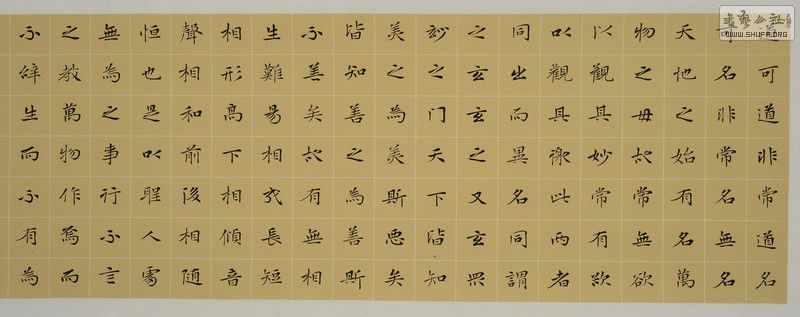 道可道非常道名
可名非常名無名
天地之始有名萬
物之毋故常無欲
以觀其妙常有欲
以觀其徼此兩者
同出而異名同謂
之玄玄之又玄眾
妙之门天下皆知
美之為美斯惡矣
皆知善之為善斯
不善矣故有無相
生難易相成長短
相形高下相傾音
聲相和前後相隨
恒也是以聖人處
無為之事行不言
之教萬物作焉而
不辭生而不有為
書藝公社
WWW.SHUFA.ORG